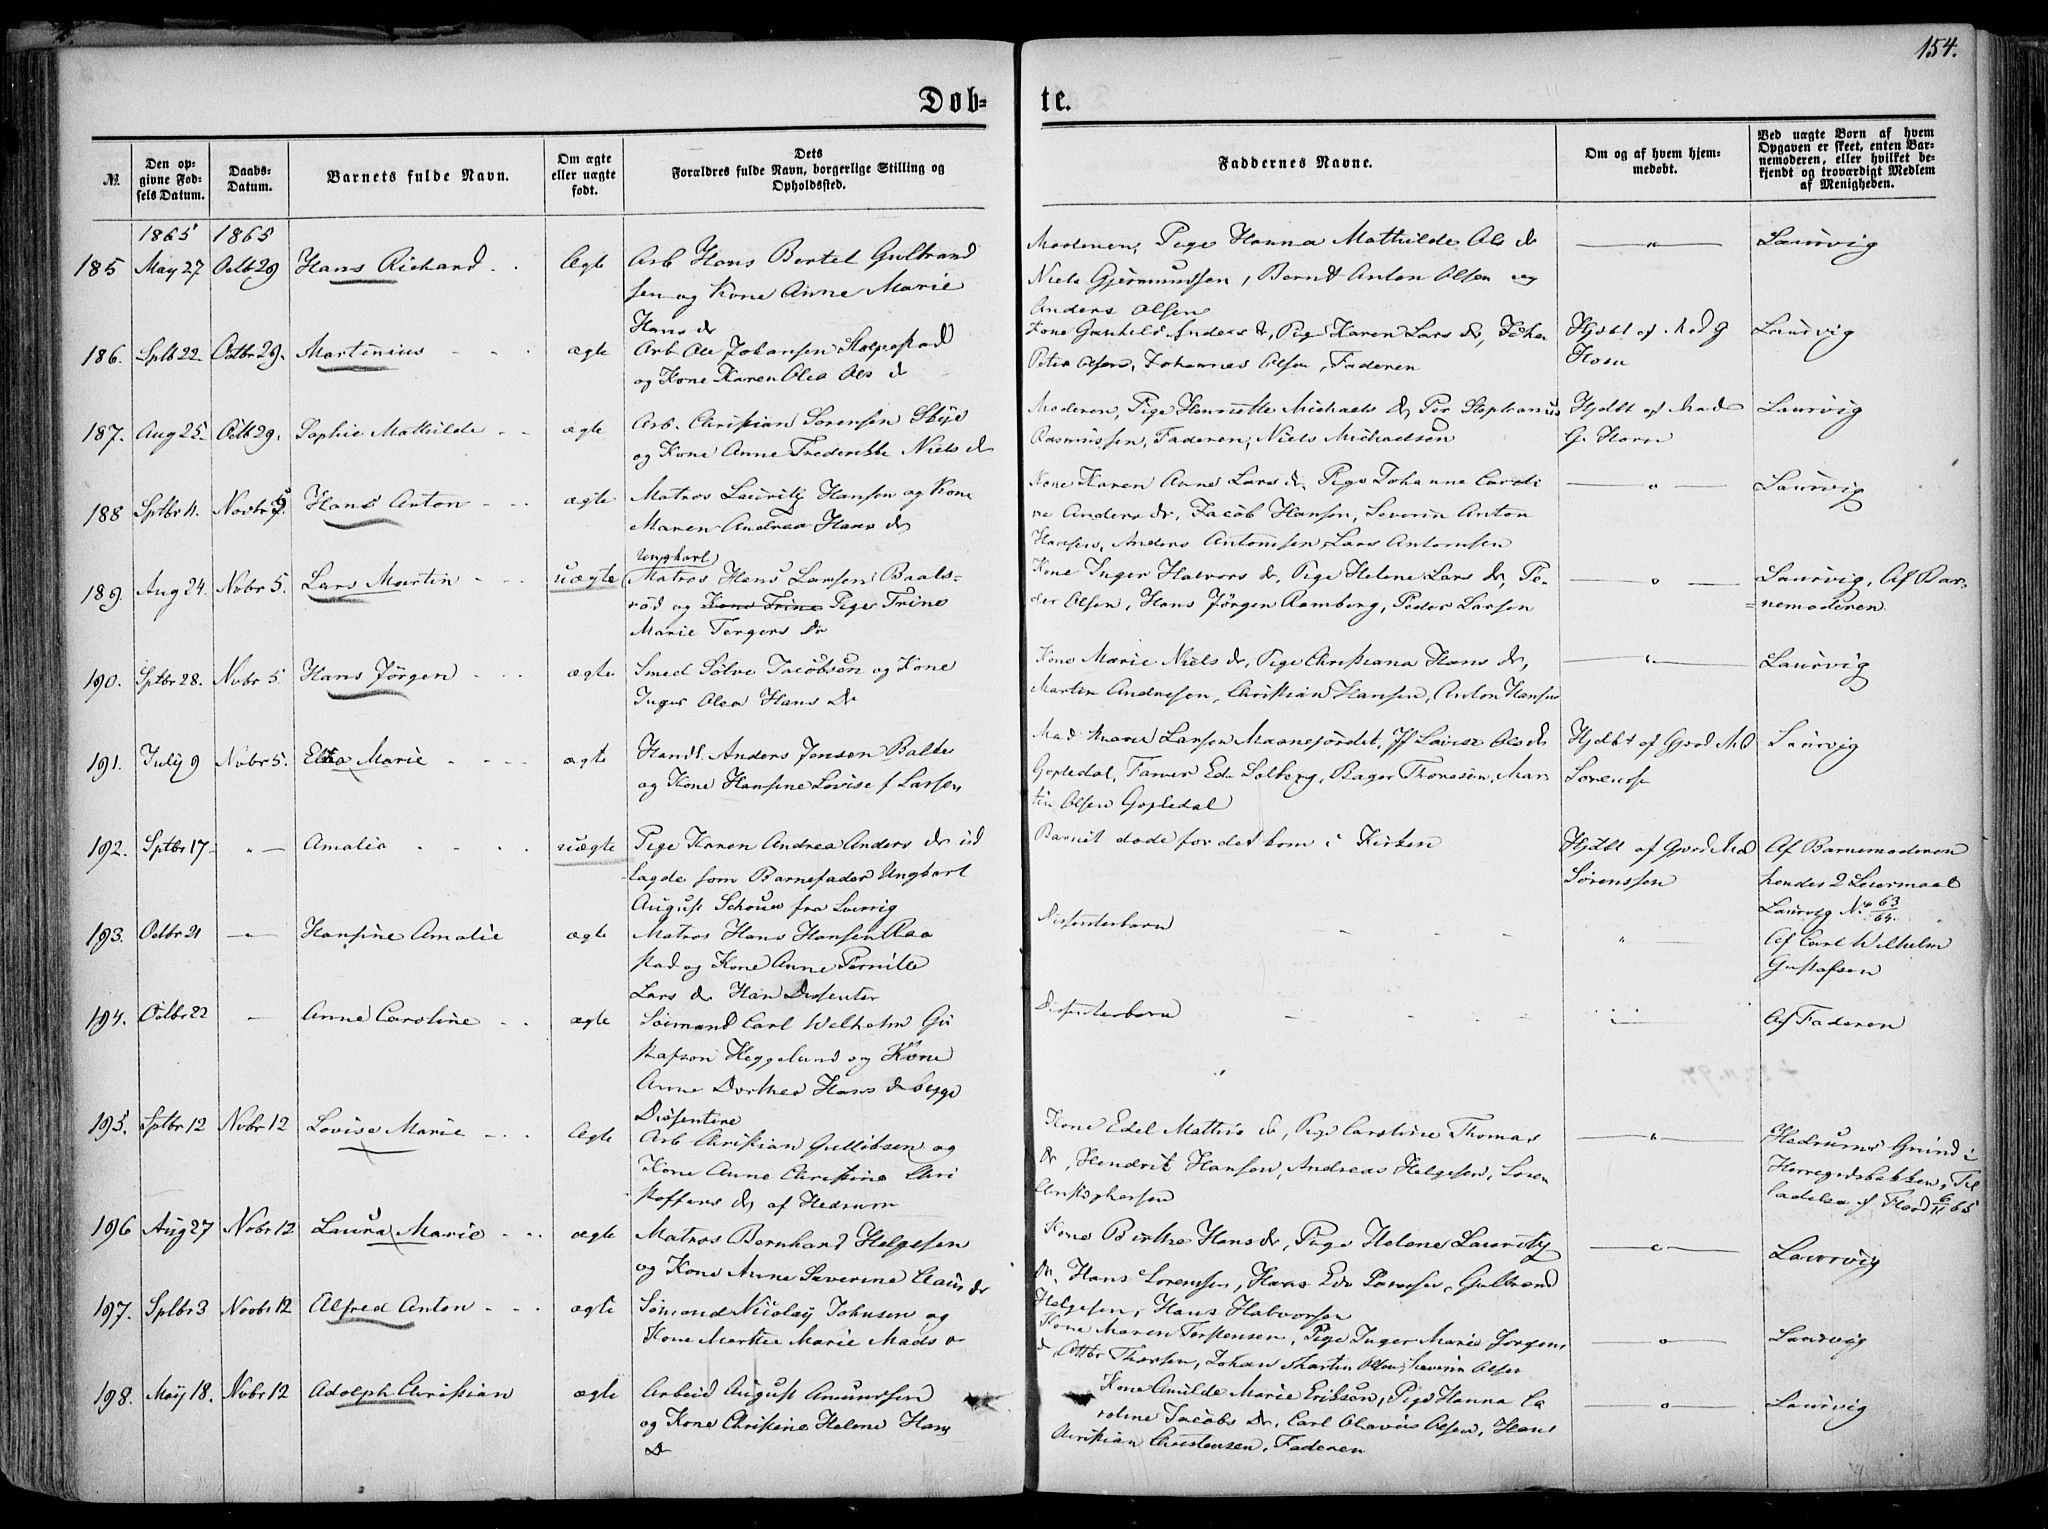 154.
Døb-
te.
№
Den op-
givne Fød-
sels Datum.
Daabs-
Datum.
Barnets fulde Navn.
Om ægte
eller uægte
født.
Dets
Forældres fulde Navn, borgerlige Stilling og
Opholdssted.
Faddernes Navne.
Om og af hvem hjem-
medøbt.
Ved uægte Børn af hvem
Opgaven er skeet, enten Bar-
nemoderen, eller hvilket be-
kjendt og troværdigt Medlem
af Menigheden.
1865 1865
185 May 27 Octb 29 Hans Richard Ægte
Arb Hans Bertel Gulbrand
sen og Kone Anne Marie
Hans dr
Moderen, Pige Hanna Mathilde Ols dr
Niels Gjermundsen, Bernt Anton Olsen og
Anders Olsen
Laurvig
186. Sptb 22. Octbr 29. Martinius ægte
Arb Ole Johansen
og Kone Karen Olea Ols dr
Kone Gunhild Anders dr, Pige Karen Lars dr, Johan
Peter Olsen, Johannes Olsen, Faderen
Hjdbt af Mad G
Horn
Laurvig
187. Aug 25. Octb 29. Sophie Mathilde ægte
Arb. Christian Sorensen
og Kone Anne Frederikke Niels dr
Moderen, Pige Henriette Michaels dr, Per Stephanus
Rasmussen, Faderen, Niels Michaelsen
Hjdbt af Mad
G. Horn
Laurvig
188 Sptbr 4. Novbr 5. Hans Anton ægte
Matros Lauritz Hansen og Kone
Maren Andrea Hans dr
Kone Karen Anne Lars dr, Pige Johanne Caroli
ne Anders dr, Jacob Hansen, Severin Anton
Hansen, Anders Antonsen, Lars Antonsen
Laurvig
189. Aug 24. Novbr 5. Lars Martin uægte
Ungkarl
Matros Hans Larsen Baals-
rød og Kone Trine Pige Trine
Marie Torgers Dr
Kone Inger Halvors dr, Pige Helene Lars dr, Pe-
der Olsen, Hans Jørgen Ramberg, Peder Larsen
Laurvig, Af Bar-
nemoderen
190. Sptbr 28. Nvbr 5 Hans Jørgen ægte
Smed Sølve Jacobsen og Kone
Inger Olea Hans Dr
Kone Marie Niels dr, Pige Christiana Hans dr,
Martin Andresen, Christian Hansen, Anton Hansen
Laurvig
191. July 9 Nvbr 5. Elisa Marie ægte
Handl. Anders Jensen Balke
og Kone Hansine Lovise f Larsen
Mad Marie Larsen Maanejordet, Jf Lovise Ols dr
Gopledal, Farver Edv Solberg, Bager Thoresen, Mar
tin Olsen Gopledal
Hjdbt af Gjord Md
Sorensen
Laurvig
192. Sptbr 17 Amalia uægte
Pige Karen Andrea Anders dr ud
lagde som Barnefader Ungkarl
August Schou fra Laurvig
Barnet døde før det kom i Kirken
Hjdbt af Gjord Mad
Sørenssen
Af Barnemoderen
hendes 2 Leiermaal
Laurvig No 63/64.
193. Octbr 21 Hansine Amalie ægte
Matros Hans Hansen Raa
stad og Kone Anne Pernille
Lars dr Han Dissenter
Dissenterbarn
Af Carl Wilhelm
Gustafsen
194. Octbr 22 Anne Caroline ægte
Sømand Carl Welhelm Gu
stafson Heggelund og Kone
Anne Dorthea Hans dr begge
Dissentere
Dissenterbarn
Af Faderen
195. Sptbr 12 Nvbr 12 Lovise Marie Ægte
Arb Christian Gullibsen og
Kone Anne Christine Chri
stoffers dr af Hedrum
Kone Edel Mathis dr, Pige Caroline Thomas
dr, Hendrik Hansen, Andreas Helgesen, Soren
Christophersen
Hedrums Grund i
Herregdsbakken, Til
ladelse af Fl 6/11 65
196 Aug 27 Nvbr 12 Laura Marie ægte
Matros Bernhard Helgesen
og Kone Anne Severine Claus dr
Kone Birthe Hans dr, Pige Helene Lauritz
dr, Hans Sorenssen, Hans Edv, Gulbrand
Helgesen, Hans Halvorsen
Laurvig
197. Sptbr 3 Novbr 12 Alfred Anton ægte
Sømand Nicolay Johnsen og
Kone Marthe Marie Mads dr
Kone Maren Torstensen, Pige Inger Marie Jorgens
dr, Thorsen, Johan Martin Olsen, Severin Olsen
Laurvig
198. May 18. Nvbr 12 Adolph Christian ægte
Arbeid August Amundsen
og Kone Christine Helene Hans
Dr
Kone Amilde Marie Eriksen, Pige Hanna Ca
roline Jacobs Dr, Carl Olavus Olsen, Hans
Christian Christensen, Faderen
Laurvig